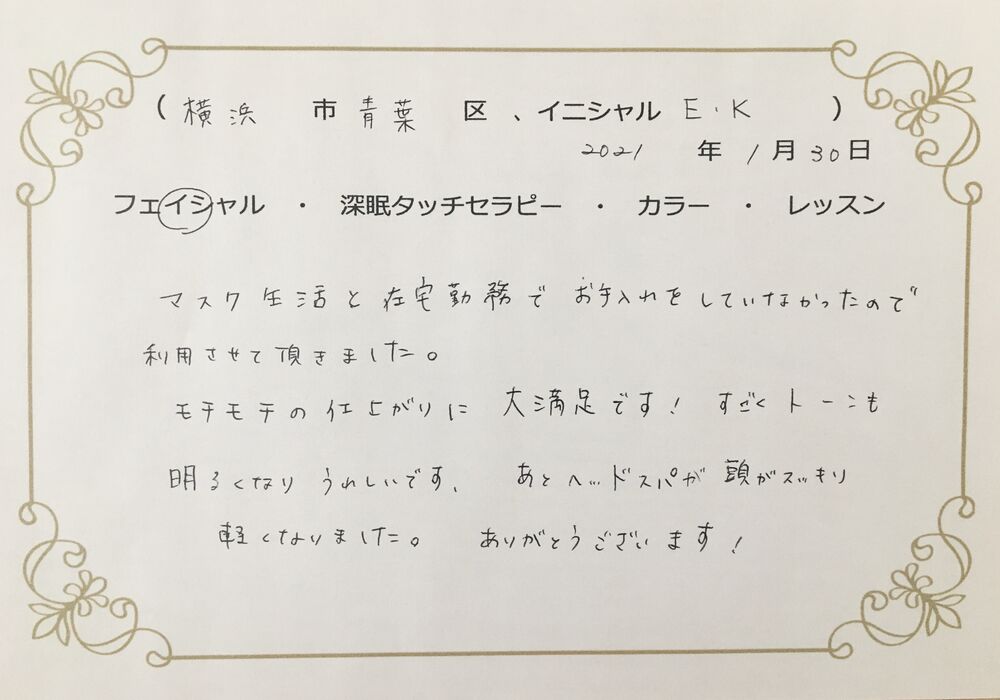 （横浜 市 青葉 区 、イニシャル E・K ）
2021 年 1 月 30 日
フェイシャル ・ 深眠タッチセラピー ・ カラー ・ レッスン
マスク生活と在宅勤務で お手入れをしていなかったので
利用させて頂きました。
モチモチの仕上がりに 大満足です! すごくトーンも
明るくなり うれしいです、 あとヘッドスパが 頭がスッキリ
軽くなりました。 ありがとうございます!